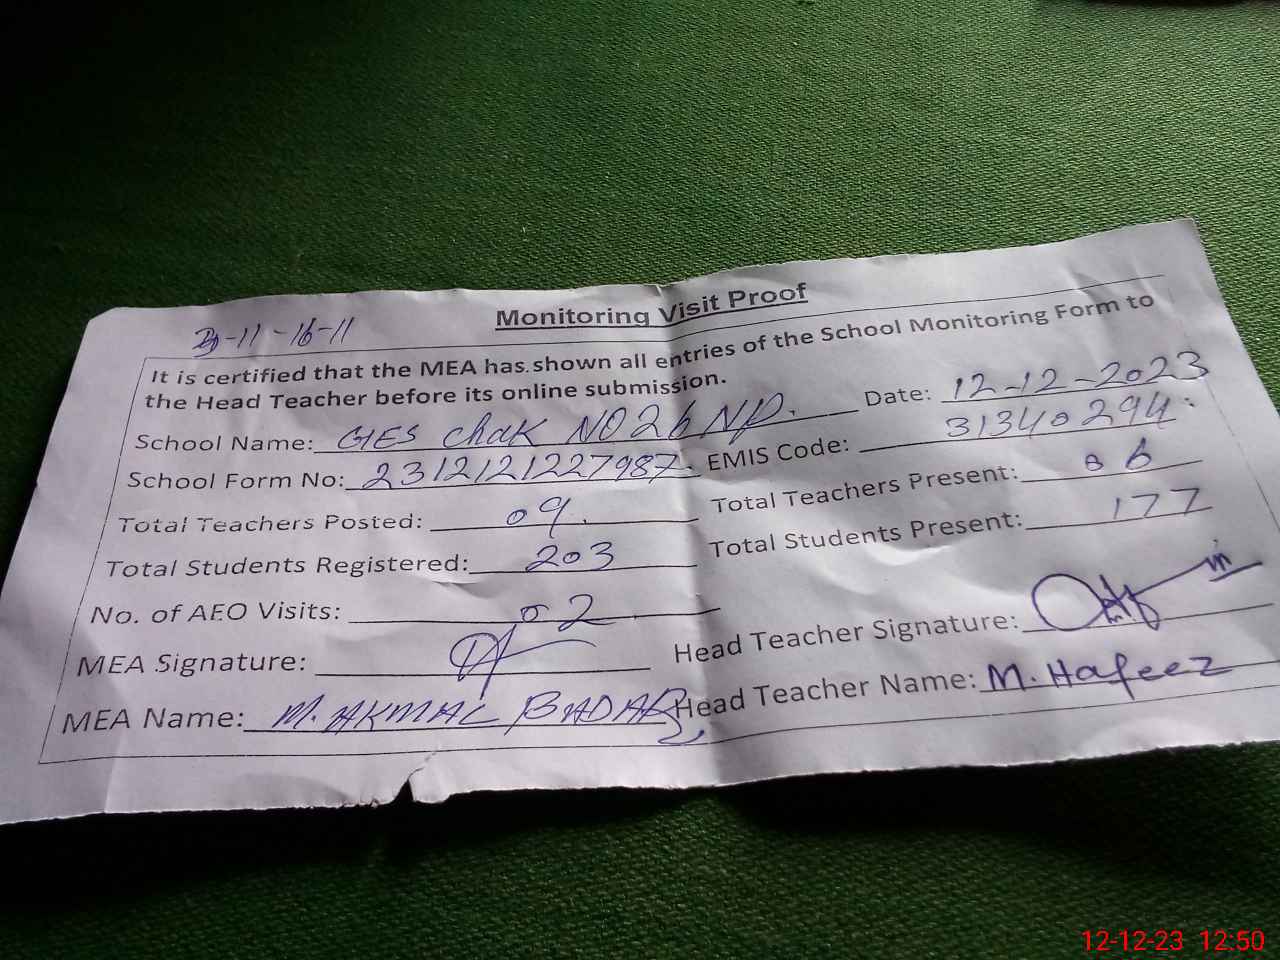 Monitoring Visit Proof
-11-16-11
It is certified that the MEA has shown all entries of the School Monitoring Form to
the Head Teacher before its online submission.
School Name: GES Chak NO 26 NP. Date: 12-12-2023
School Form No: 2312121227987. EMIS Code: 31340294
Total Teachers Posted: 09 Total Teachers Present: 06
Total Students Registered: 203 Total Students Present: 177
No. of AEO Visits: 02
MEA Signature: Head Teacher Signature:
MEA Name: M. AKMAL BADAR Head Teacher Name: M. Hafeez
12-12-23 12:50